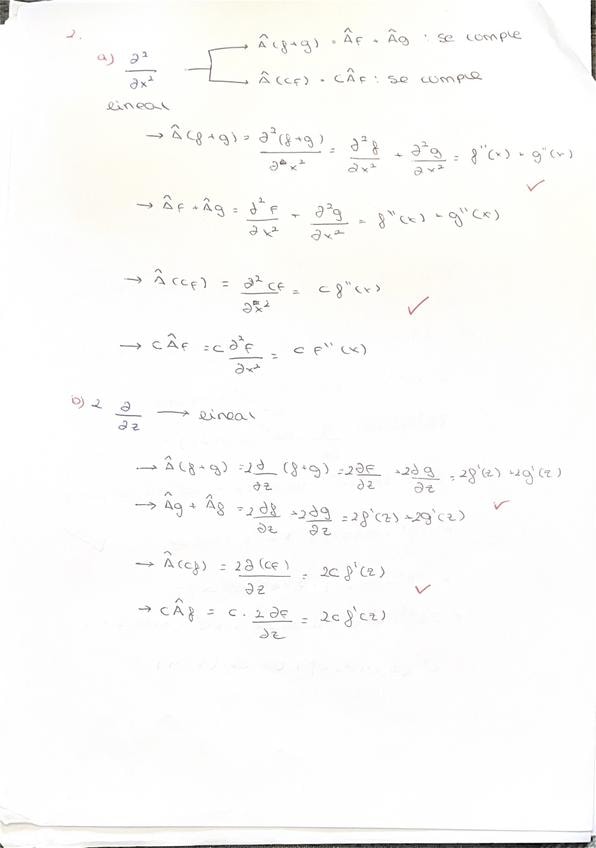 2.
a) ∂²/∂x² → Â(f+g) = Âf + Âg : se cumple
→ Â(cf) = cÂf : se cumple
lineal
→ Â(f+g) = ∂²(f+g)/∂x² = ∂²f/∂x² + ∂²g/∂x² = f''(x) + g''(x) ✓
→ Âf + Âg = ∂²f/∂x² + ∂²g/∂x² = f''(x) + g''(x)
→ Â(cf) = ∂²cf/∂x² = c f''(x) ✓
→ cÂf = c ∂²f/∂x² = c f''(x)
b) 2 ∂/∂z → lineal
→ Â(f+g) = 2∂/∂z (f+g) = 2∂f/∂z + 2∂g/∂z = 2f'(z) + 2g'(z)
→ Âg + Âf = 2∂f/∂z + 2∂g/∂z = 2f'(z) + 2g'(z) ✓
→ Â(cf) = 2∂(cf)/∂z = 2c f'(z) ✓
→ cÂf = c · 2∂f/∂z = 2c f'(z)